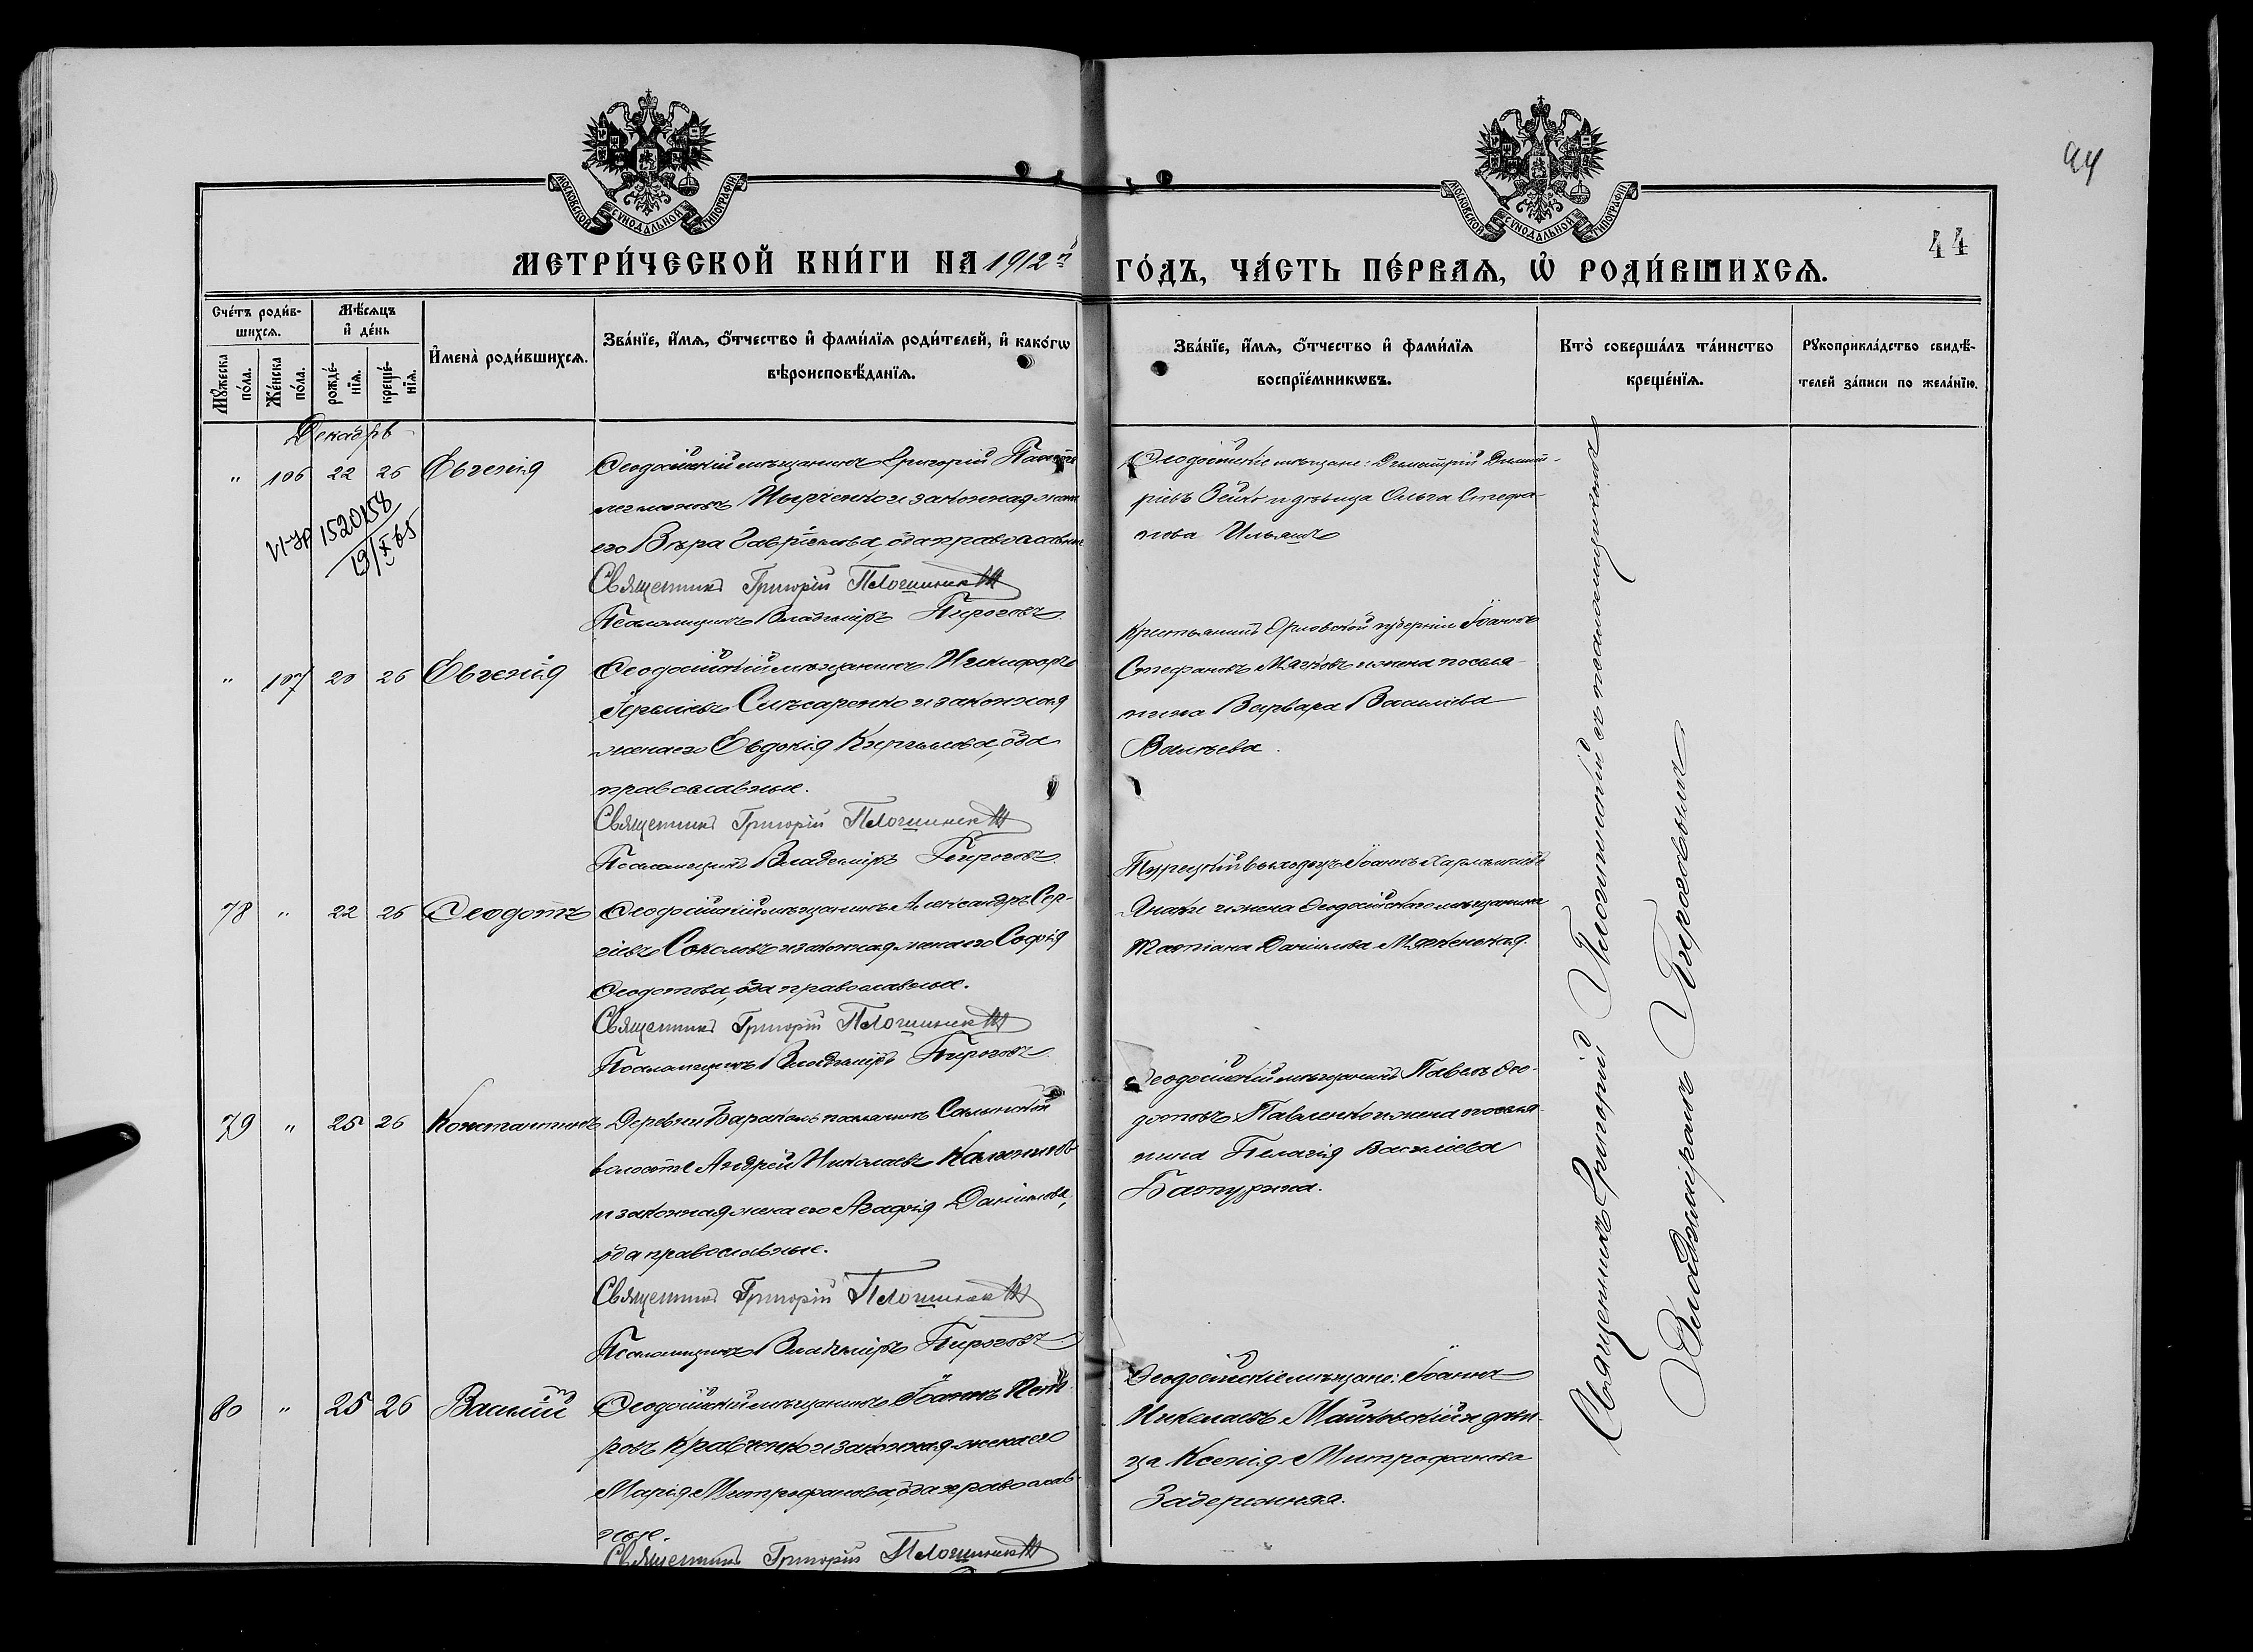 94
МОСКОВСКОЙ СѴНОДАЛЬНОЙ ТИПОГРАФІИ
МОСКОВСКОЙ СѴНОДАЛЬНОЙ ТИПОГРАФІИ
44
МЕТРИ́ЧЕСКОЙ КНИ́ГИ НА 1912 й ГО́ДЪ, ЧА́СТЬ ПЕ́РВАЯ, Ѡ҆ РОДИ́ВШИХСЯ.
Сче́тъ роди́в-
шихсѧ.
Мꙋ́жеска по́ла.
Же́нска по́ла.
Мѣ́сѧцъ
и҆ де́нь
рожде́-нїѧ.
креще́-нїѧ.
И҆мена̀ роди́вшихсѧ.
Зва́нїе, и҆́мѧ, ѻ҆́тчество и҆ фами́лїѧ роди́телей, и҆ како́гѡ
вѣроисповѣ́данїѧ.
Зва́нїе, и҆́мѧ, ѻ҆́тчество и҆ фами́лїѧ
воспрїе́мникѡвъ.
Кто̀ соверша́лъ та́инство
креще́нїѧ.
Рꙋкоприкла́дство свидѣ́-
телей за́писи по жела́нїю.
Декабрь
" 106 22 26 Евгенія
Ѳеодосійскій мѣщанинъ Григорій Панте-
леимоновъ Ильченко и законная жена
его Вѣра Гавріилова, оба православные
Священникъ Григорій Плогинскій
Псаломщикъ Владиміръ Пироговъ
Ѳеодосійскіе мѣщане: Димитрій Димит-
ріевъ Зейко и дѣвица Ольга Стефа-
нова Ильяшъ
VI-ЯР 1520158
19/X 65
" 107 20 26 Евгенія
Ѳеодосійскій мѣщанинъ Никифоръ
Слѣсаренко и законная
жена его Евдокія Кириллова, оба
православные.
Священникъ Григорій Плогинскій
Псаломщикъ Владиміръ Пироговъ
Крестьянинъ Орловской губерніи Іоаннъ
Стефановъ Мягковъ и жена поселя-
нина Варвара Василіева
Вантѣева.
78 " 22 26 Ѳеодотъ
Ѳеодосійскій мѣщанинъ Александръ Сер-
гіевъ Соколовъ и законная жена его Софія
Ѳеодотова, оба православные.
Священникъ Григорій Плогинскій
Псаломщикъ Владиміръ Пироговъ
Турецкій выходецъ Іоаннъ Харлампіевъ
и жена Ѳеодосійскаго мѣщанина
Татіана Даніилова
79 " 25 26 Константинъ
Деревни Баракольъ поселянинъ Салынской
волости Андрей Николаевъ Калинниковъ
и законная жена его Агафія Даніилова,
оба православные.
Священникъ Григорій Плогинскій
Псаломщикъ Владиміръ Пироговъ
Ѳеодосійскій мѣщанинъ Павелъ Ѳео-
дотовъ Павленко и жена поселя-
нина Пелагія Василіева
Батурина.
80 " 25 26 Василій
Ѳеодосійскій мѣщанинъ Іоаннъ Пет-
ровъ Кравченко и законная жена его
Марія Митрофанова, оба православ-
ные.
Священникъ Григорій Плогинскій
Ѳеодосійскіе мѣщане: Іоаннъ
Николаевъ Маиковскій и дѣви-
ца Ксенія Митрофанова
Задерижняя.
Священникъ Григорій Плогинскій съ псаломщикомъ
Владиміромъ Пироговымъ